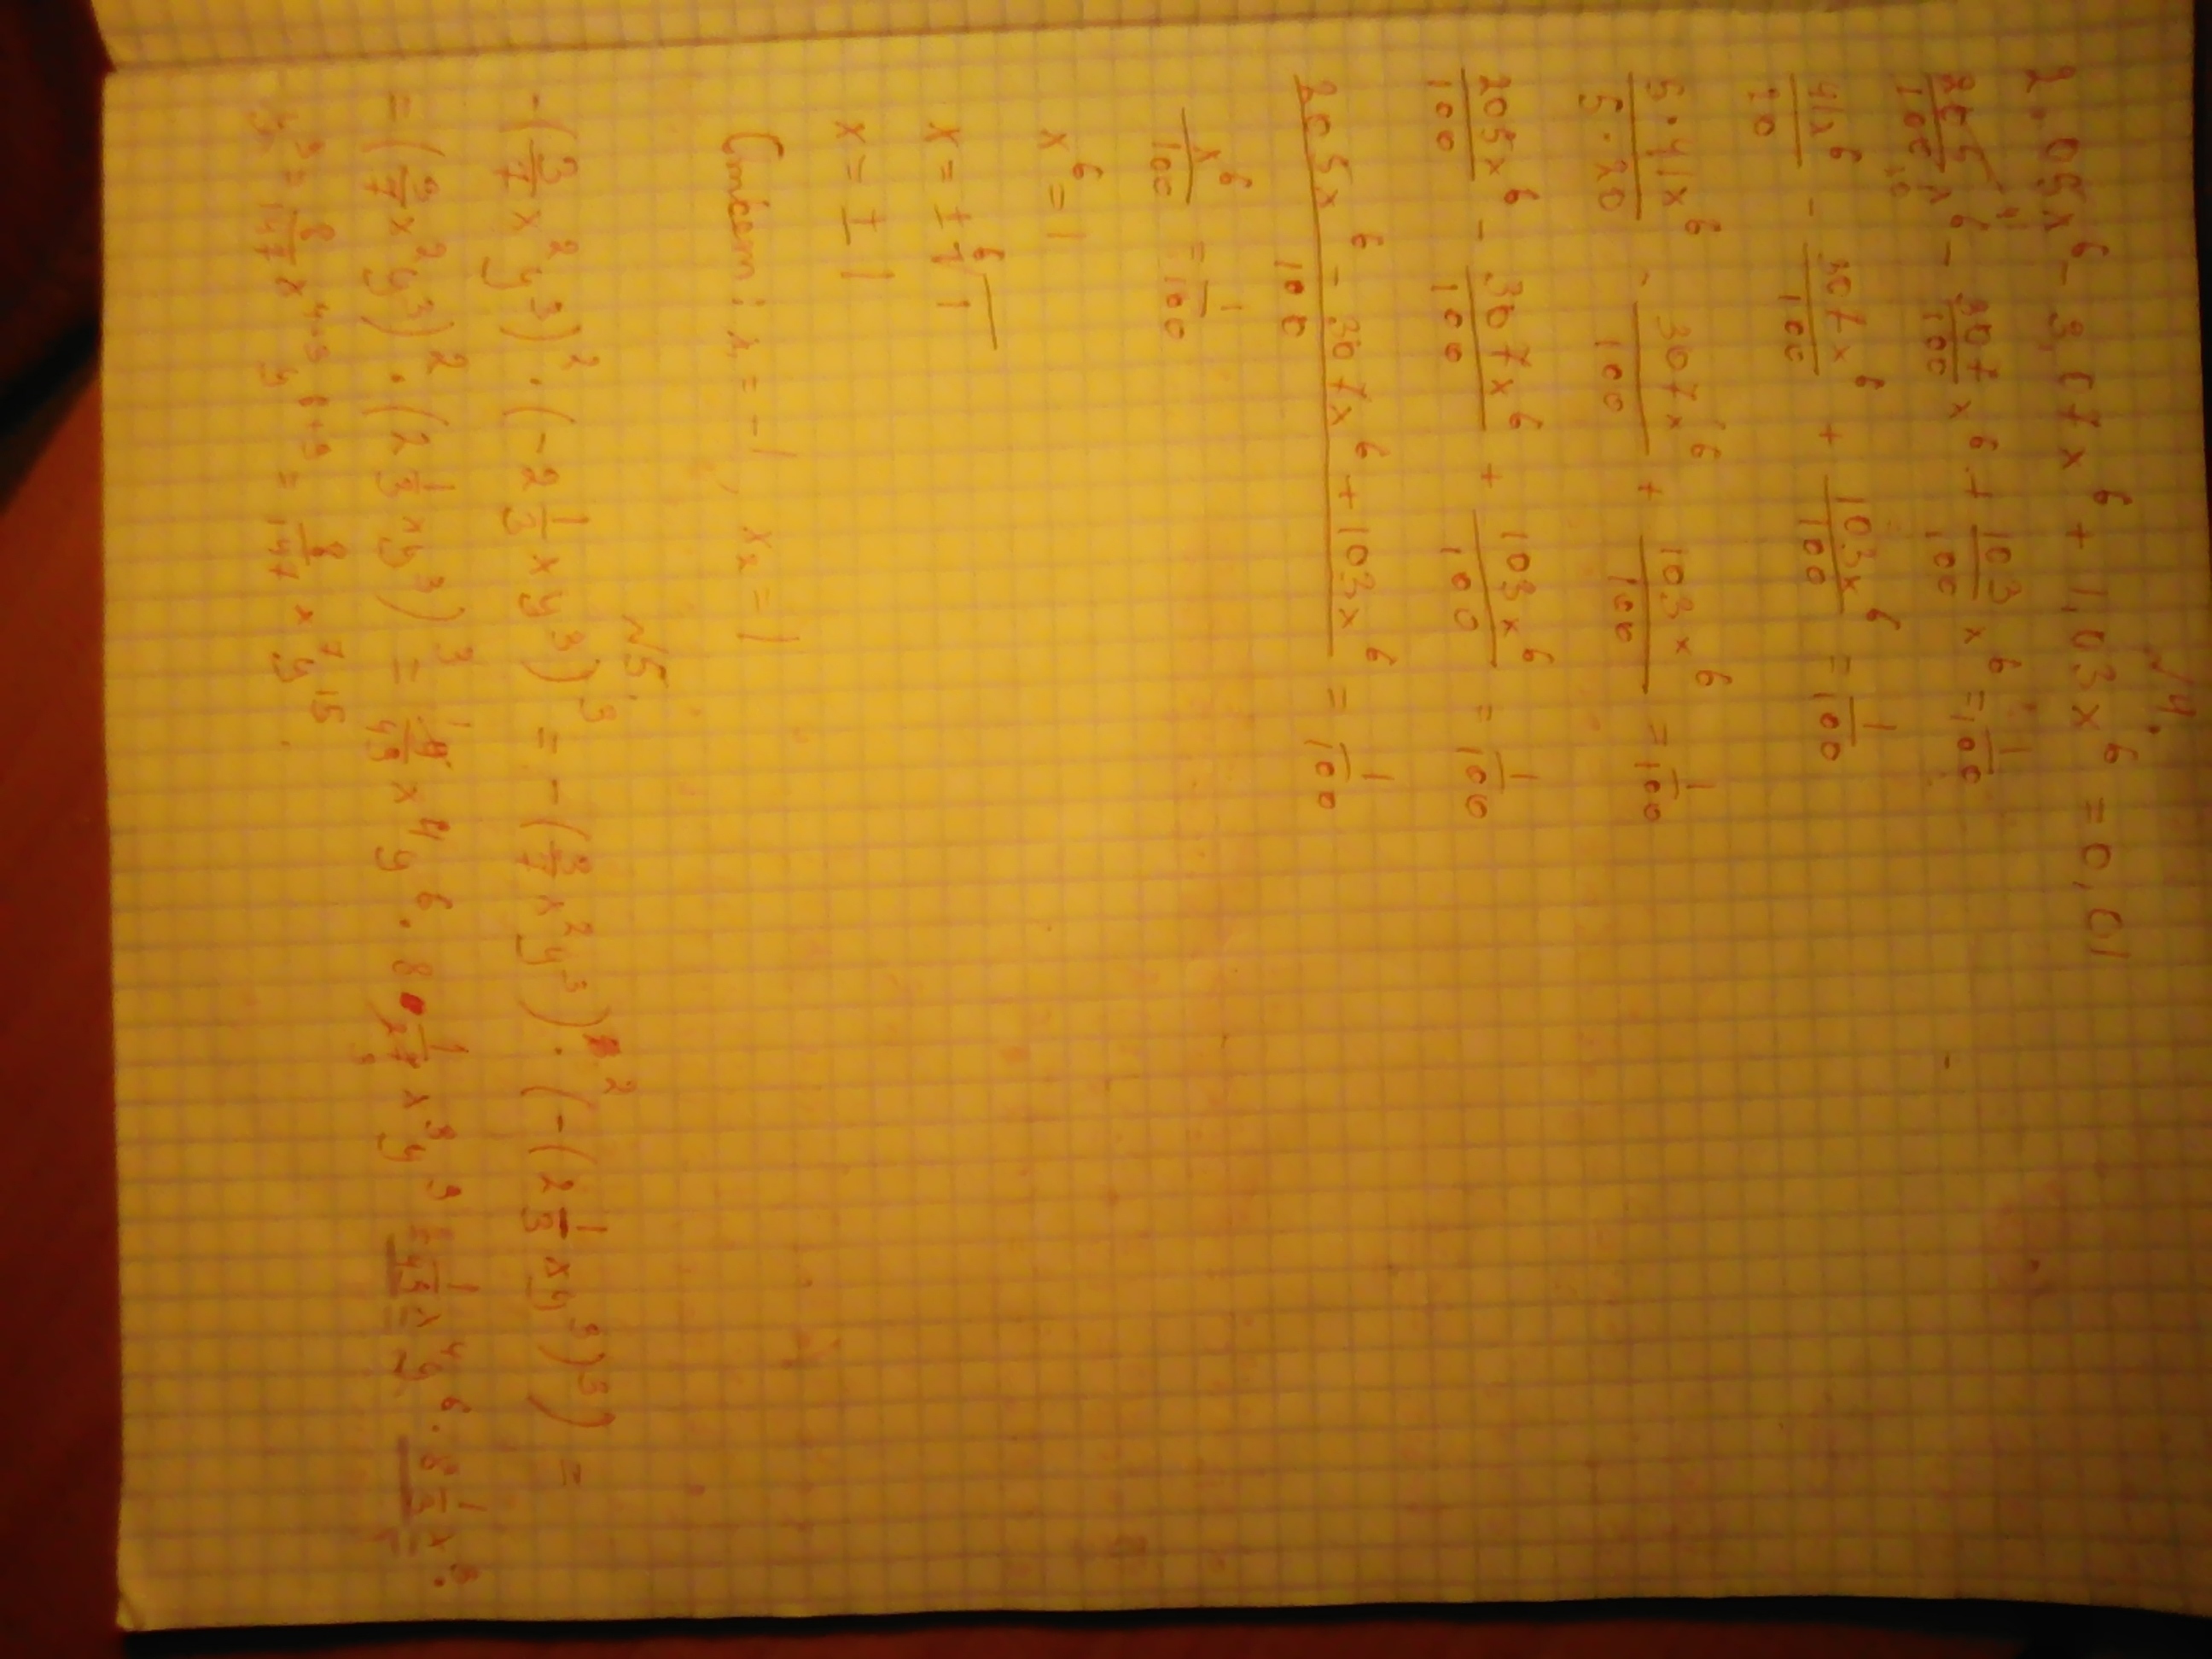 №4.
2,05x⁶ - 3,07x⁶ + 1,03x⁶ = 0,01
205/100 x⁶ - 307/100 x⁶ + 103/100 x⁶ = 1/100
41x⁶/20 - 307x⁶/100 + 103x⁶/100 = 1/100
5·41x⁶/5·20 - 307x⁶/100 + 103x⁶/100 = 1/100
205x⁶/100 - 307x⁶/100 + 103x⁶/100 = 1/100
205x⁶ - 307x⁶ + 103x⁶/100 = 1/100
x⁶/100 = 1/100
x⁶ = 1
x = ± ⁶√1
x = ± 1
x₁ = -1, x₂ = 1
№5.
-(3/7 x²y³)² · (-2 1/3 xy³)³ = -(3/7 x²y³)² · (-(2 1/3 xy³)³) =
= (3/7 x²y³)² · (2 1/3 xy³)³ = 9/49 x⁴y⁶ · 8 1/27 x³y⁹ = 1/49 x⁴y⁶ · 8 1/3 x³·
y⁹ = 8/147 x⁴⁺³ y⁶⁺⁹ = 8/147 x⁷y¹⁵.